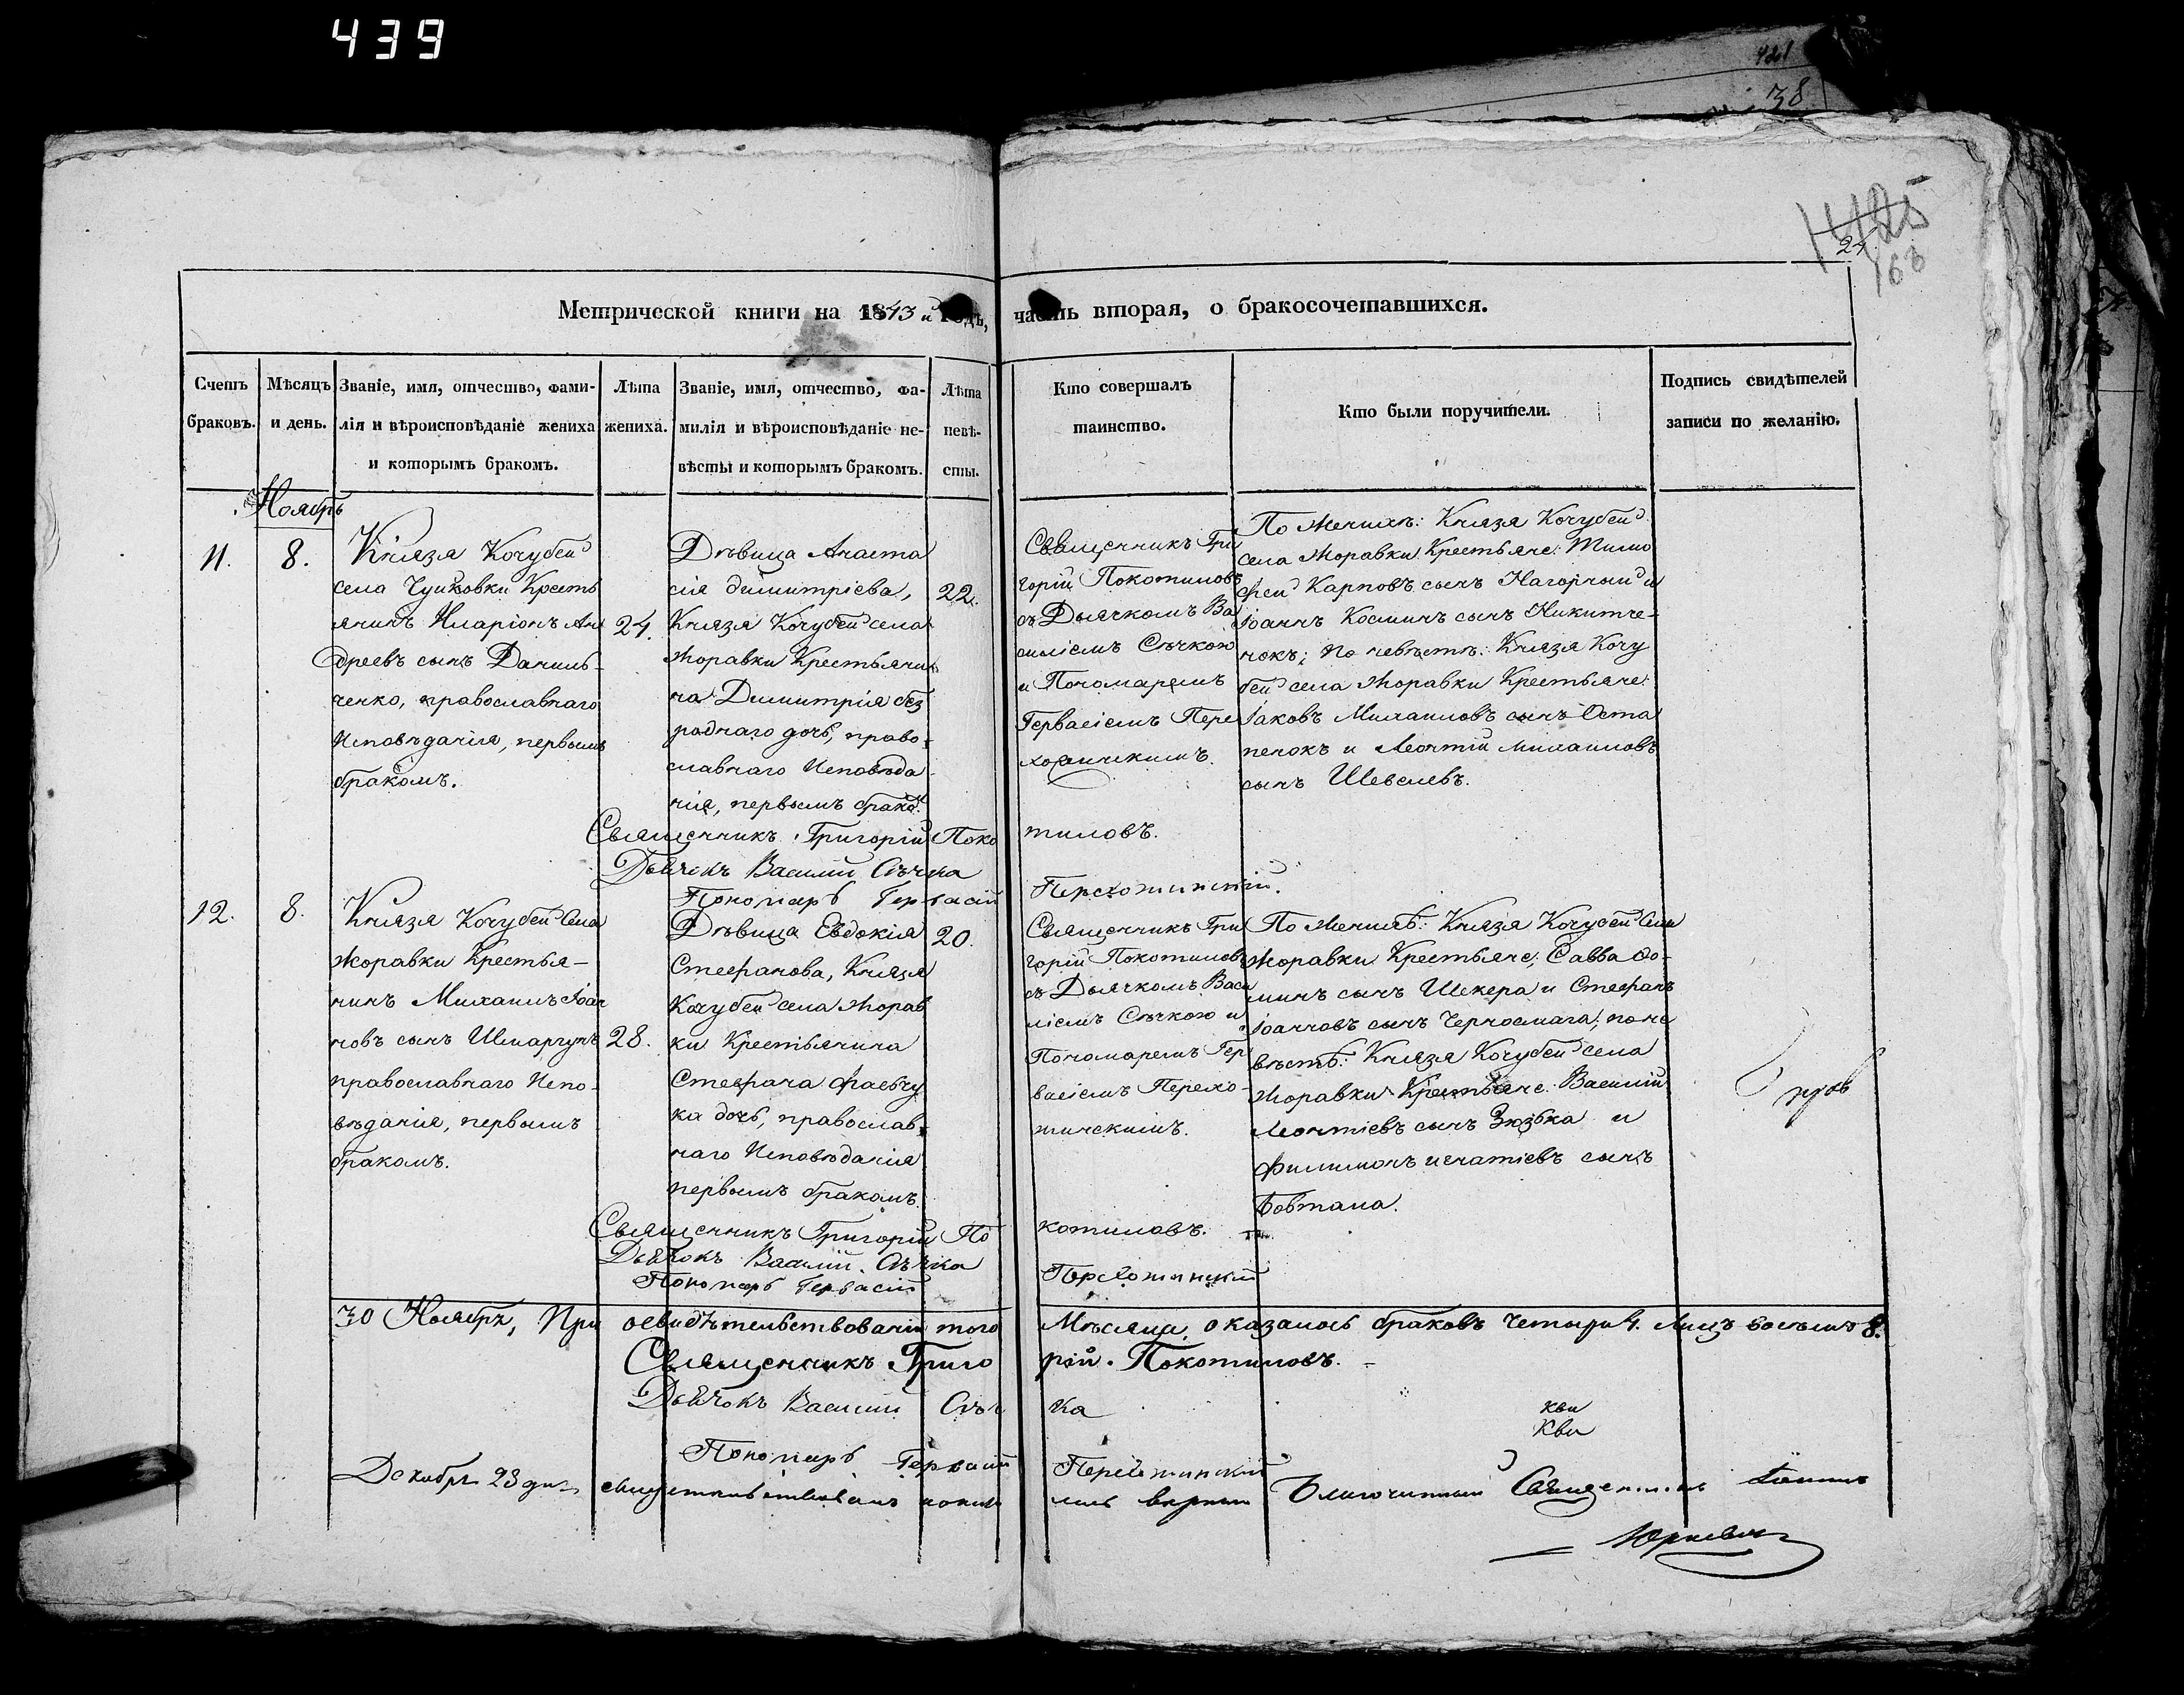 439
421
38
24
168
Метрической книги на 1843й годъ, часть вторая, о бракосочетавшихся.
Счетъ
браковъ.
Мѣсяцъ
и день.
Званіе, имя, отчество, фами-
лія и вѣроисповѣданіе жениха
и которымъ бракомъ.
Лѣта
жениха.
Званіе, имя, отчество, фа-
милія и вѣроисповѣданіе не-
вѣсты и которымъ бракомъ.
Лѣта
невѣ-
сты.
Кто совершалъ
таинство.
Кто были поручители.
Подпись свидѣтелей
записи по желанію.
Ноябрь
11.
8.
Князя Кочубей
села Чутковки Кресть
янинъ Иларіонъ Ан
дреевъ сынъ Даниль-
ченко, православнаго
Исповѣданія, первымъ
бракомъ.
24.
Дѣвица Анаста
сія Димитріева,
Князя Кочубей села
Жоравки Крестьяни
на Димитрія без
роднаго дочь, право-
славнаго Исповѣда-
нія, первымъ брако.
22.
Священникъ Гри
горій Покотиловъ
съ Дьячкомъ Ва
силіемъ Сѣчкою
и Пономаремъ
Гервасіемъ Пере
хожинскимъ.
По женихѣ: Князя Кочубей
села Жоравки Крестьяне: Тимо
фей Карповъ сынъ Нагорный и
Іоаннъ Косминъ сынъ Никитче-
нокъ; по невѣстѣ: Князя Кочу
бей села Жоравки Крестьяне:
Іаковъ Михаиловъ сынъ Оста
пенокъ и Леонтій Михаиловъ
сынъ Шевелевъ.
Священникъ Григорій Поко тиловъ.
Дьячокъ Василий Сѣчка
Пономарь Гервасий Перехожинскій.
12.
8.
Князя Кочубей Села
Жоравки Крестья-
нинъ Михаилъ Іоан
новъ сынъ Шмаргунъ
православнаго Испо-
вѣданія, первымъ
бракомъ.
28.
Дѣвица Евдокія
Стефанова, Князя
Кочубей села Жорав
ки Крестьянина
Стефана Фаевчу
ка дочь, православ-
наго Исповѣданія
первымъ бракомъ.
20.
Священникъ Гри
горій Покотиловъ
съ Дьячкомъ Васи
ліемъ Сѣчкою и
Пономаремъ Гер
васіемъ Перехо-
жинскимъ.
По женихѣ: Князя Кочубей Села
Жоравки Крестьяне; Савва Фо-
минъ сынъ Шекера и Стефанъ
Іоанновъ сынъ Черносмага; по не
вѣстѣ: Князя Кочубей села
Жоравки Крестьяне: Василій
Леонтіевъ сынъ Зюзька и
Филимонъ Игнатіевъ сынъ
Бовтана.
Священникъ Григорій По котиловъ.
Дьячокъ Василій Сѣчка
Пономарь Гервасій Перехожинский
30 Ноября, При освидѣтельствованіи того Мѣсяца, оказалось браковъ четыри 4. Лицъ восьмъ 8.
Священникъ Григо рій Покотиловъ.
Дьячокъ Василий Сѣч ка
Пономарь Гервасий Перехожинский
Декабря 23 дня Благочинный Священникъ
Юркевичъ